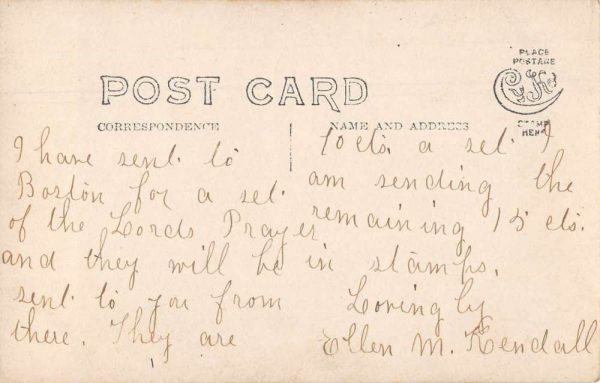 POST CARD
PLACE
POSTAGE
STAMP
HERE
CORRESPONDENCE
NAME AND ADDRESS
I have sent to
Boston for a set
of the Lords Prayer
and they will be
sent to you from
there. They are
10 cts. a set I
am sending the
remaining 15 cts.
in stamps.
Lovingly
Ellen M. Kendall